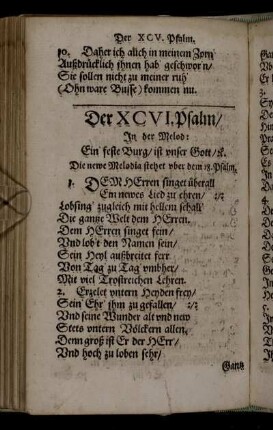 Der XCV. Psalm.
10. Daher ich auch in meinem Zorn
Außdrücklich ihnen hab geschworn/
Sie sollen nicht zu meiner ruh
(Ohn ware Busse) kommen nu.
Der XCVI. Psalm/
In der Melod:
Ein feste Burg/ ist vnser Gott/ &.
Die newe Melodia stehet vber dem 18. Psalm.
1. DEM HErren singet überall
Ein newes Lied zu ehren/
Lobsing zugleich mit hellem schall
Die gantze Welt dem HErren.
Dem HErren singet fein/
Vnd lob't den Namen sein/
Sein Heyl außbreitet ferr
Von Tag zu Tag vmbher/
Mit viel Trostreichen Lehren.
2. Erzelet vntern Heyden frey/
Sein Ehr' jhm zu gefallen,
Vnd seine Wunder alt vnd new
Stets vntern Völckern allen,
Denn groß ist Er der HErr/
Vnd hoch zu loben sehr/
Gantz